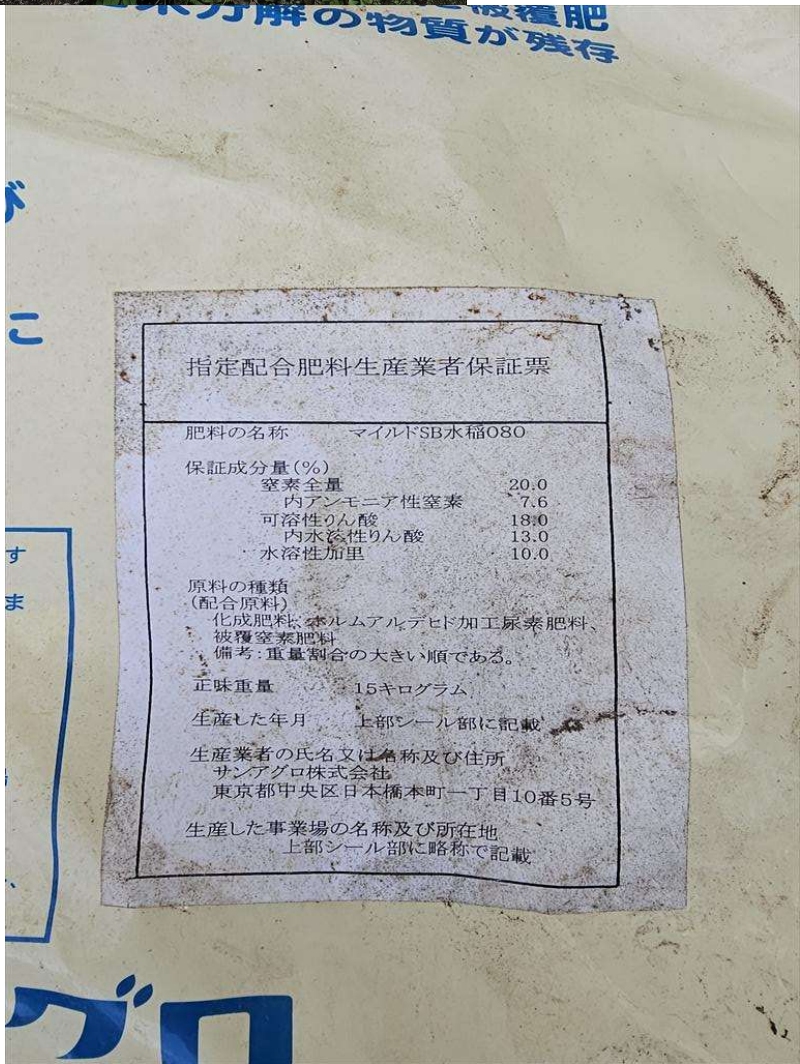 被覆肥
未分解の物質が残存
び
に
す
ま
指定配合肥料生産業者保証票
肥料の名称 マイルドSB水稲080
保証成分量(%)
窒素全量 20.0
内アンモニア性窒素 7.6
可溶性りん酸 18.0
内水溶性りん酸 13.0
水溶性加里 10.0
原料の種類
(配合原料)
化成肥料、ホルムアルデヒド加工尿素肥料、
被覆窒素肥料
備考:重量割合の大きい順である。
正味重量 15キログラム
生産した年月 上部シール部に記載
生産業者の氏名又は名称及び住所
サンアグロ株式会社
東京都中央区日本橋本町一丁目10番5号
生産した事業場の名称及び所在地
上部シール部に略称で記載
グロ